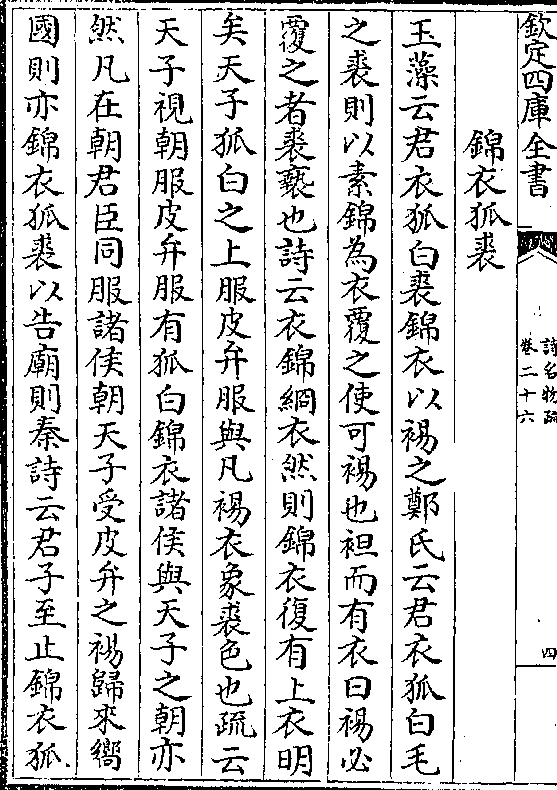 欽定四庫全書
詩名物疏
卷二十六
四
錦衣狐裘
玉藻云君衣狐白裘錦衣以裼之鄭氏云君衣狐白毛
之裘則以素錦為衣覆之使可裼也袒而有衣曰裼必
覆之者裘䙝也詩云衣錦綗衣然則錦衣復有上衣明
矣天子狐白之上服皮弁服與凡裼衣象裘色也疏云
天子視朝服皮弁服有狐白錦衣諸侯與天子之朝亦
然凡在朝君臣同服諸侯朝天子受皮弁之裼歸來嚮
國則亦錦衣狐裘以告廟則秦詩云君子至止錦衣狐